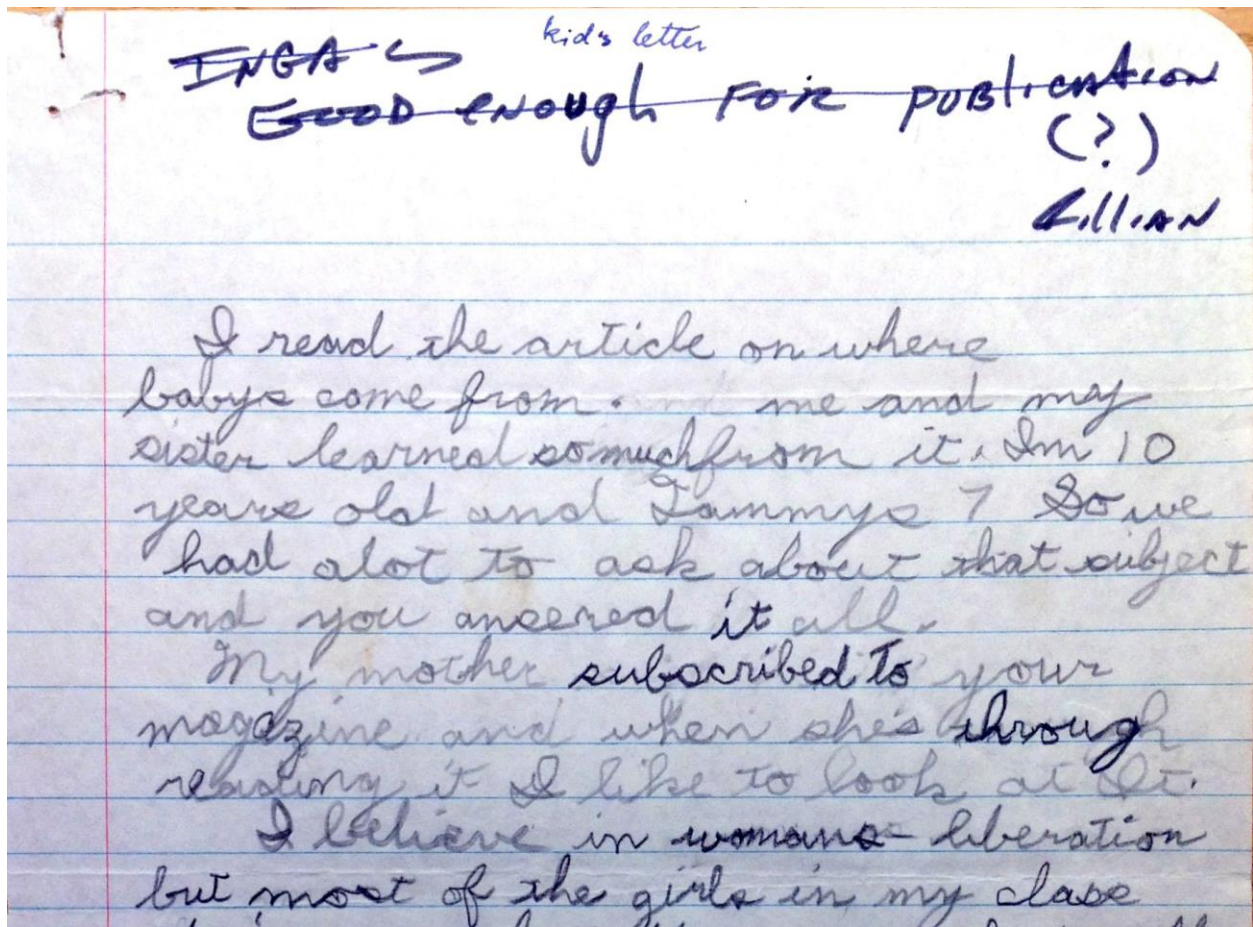 kid's letter
INGA
GOOD ENOUGH FOR PUBLICATION
(?)
LILLIAN
I read the article on where
babys come from. me and my
sister learned so much from it. Im 10
years old and Tammys 7 So we
had alot to ask about that subject
and you ancered it all.
My mother subscribed to your
magazine and when she's through
reading it I like to look at It.
I believe in womans liberation
but most of the girls in my class